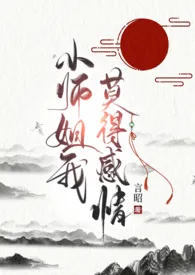 小师姐我
莫得感情
言昭